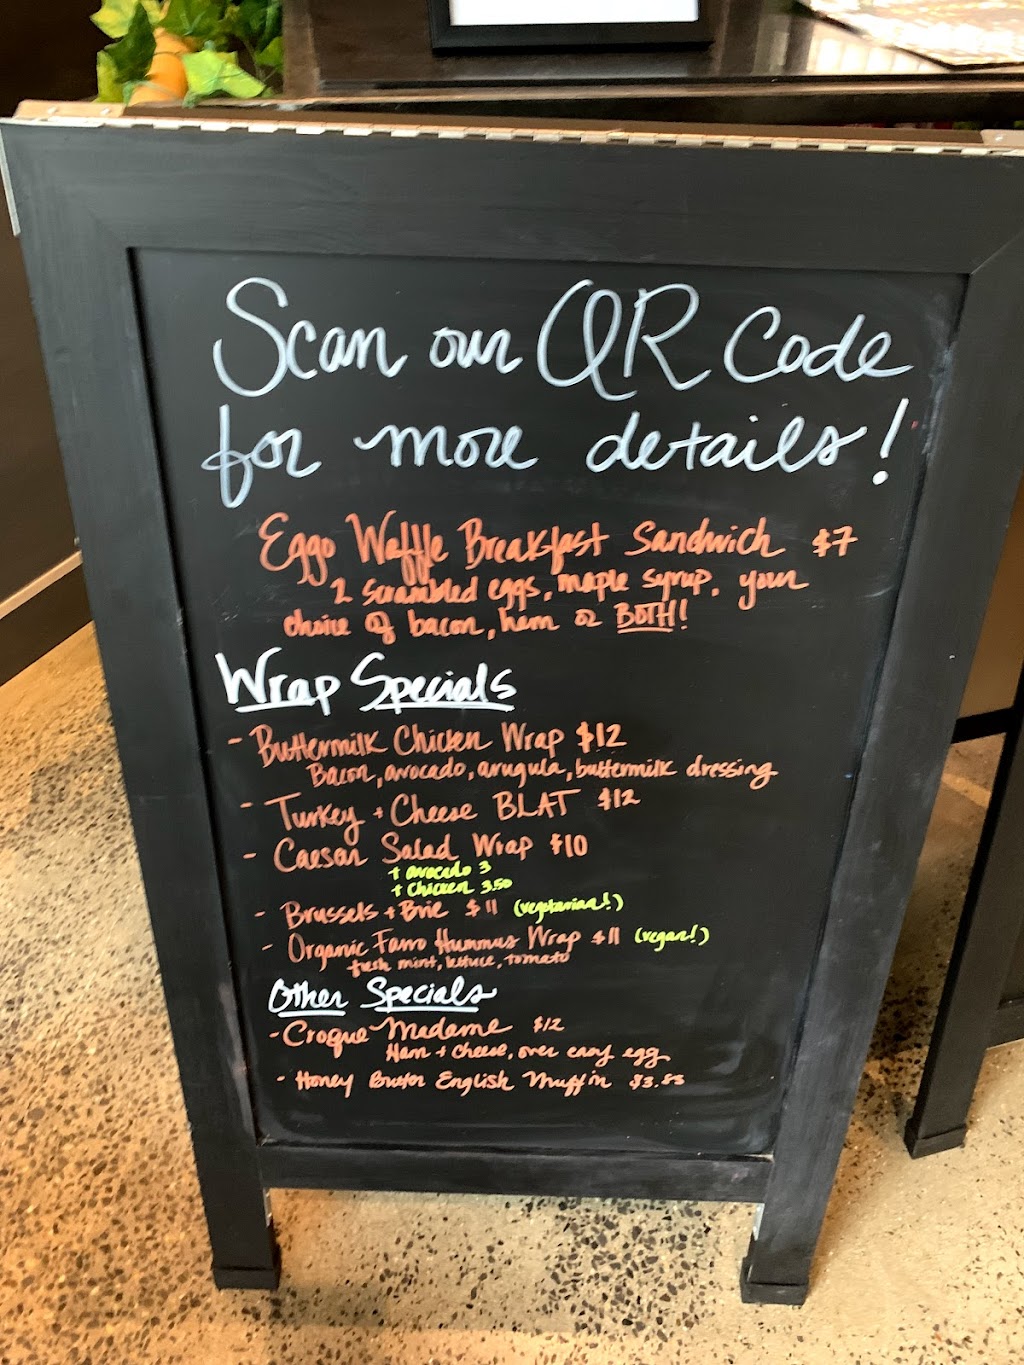 Scan our QR Code
for more details!
Eggo Waffle Breakfast Sandwich $7
2 scrambled eggs, maple syrup, your
choice of bacon, ham or BOTH!
Wrap Specials
- Buttermilk Chicken Wrap $12
Bacon, avocado, arugula, buttermilk dressing
- Turkey + Cheese BLAT $12
- Caesar Salad Wrap $10
+ avocado 3
+ chicken 3.50
- Brussels + Brie $11 (vegetarian!)
- Organic Farro Hummus Wrap $11 (vegan!)
fresh mint, lettuce, tomato
Other Specials
- Croque Madame $12
Ham + cheese, over easy egg
- Honey Butter English Muffin $3.85